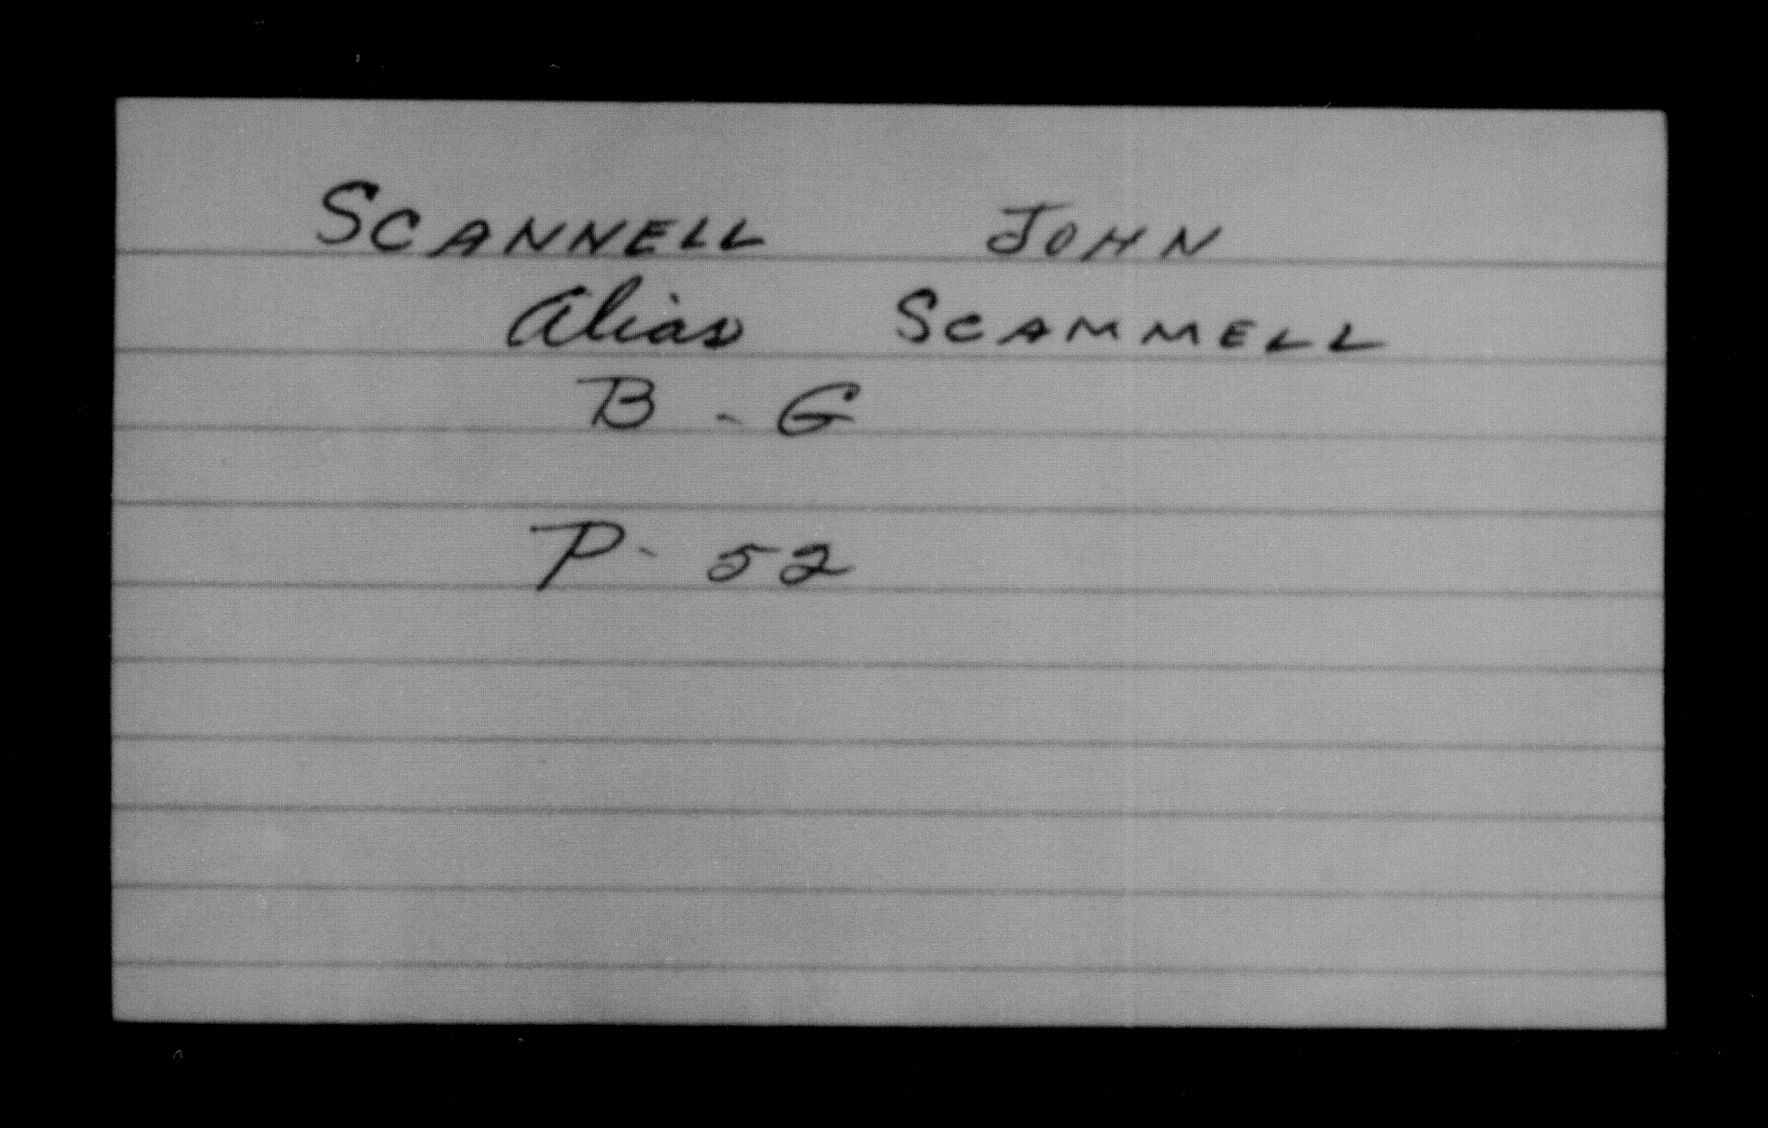 SCANNELL JOHN
Alias SCAMMELL
B - G
P - 52